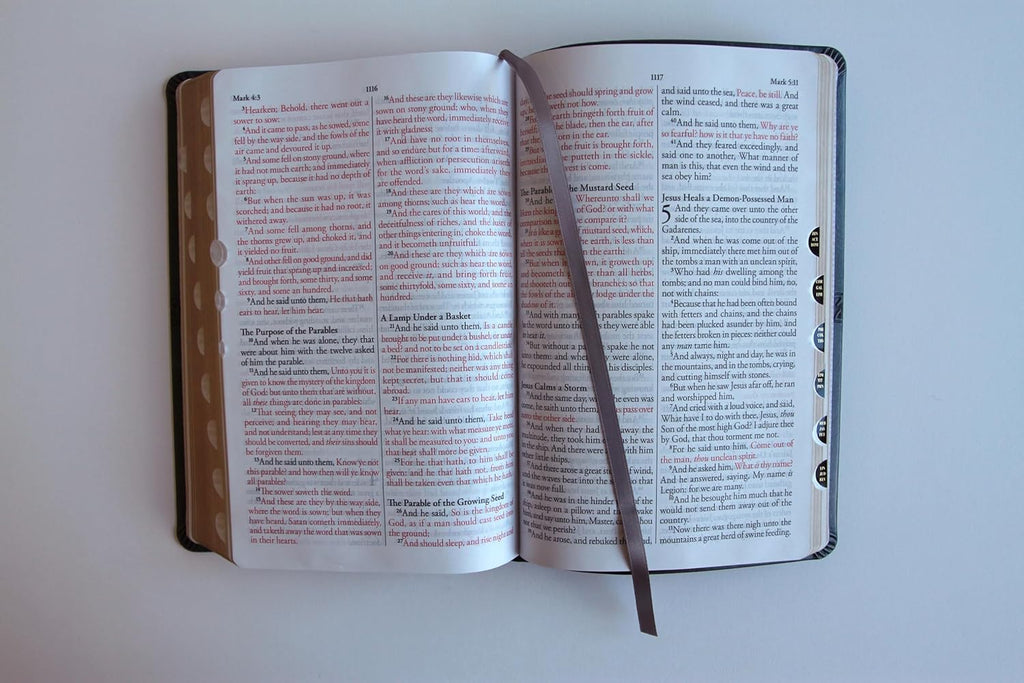 Mark 4:3
1116
3Hearken; Behold, there went out a
sower to sow:
4And it came to pass, as he sowed, some
fell by the way side, and the fowls of the
air came and devoured it up.
5And some fell on stony ground, where
it had not much earth; and immediately
it sprang up, because it had no depth of
earth:
6But when the sun was up, it was
scorched; and because it had no root, it
withered away.
7And some fell among thorns, and
the thorns grew up, and choked it, and
it yielded no fruit.
8And other fell on good ground, and did
yield fruit that sprang up and increased;
and brought forth, some thirty, and some
sixty, and some an hundred.
9And he said unto them, He that hath
ears to hear, let him hear.
The Purpose of the Parables
10And when he was alone, they that
were about him with the twelve asked
of him the parable.
11And he said unto them, Unto you it is
given to know the mystery of the kingdom
of God: but unto them that are without,
all these things are done in parables:
12That seeing they may see, and not
perceive; and hearing they may hear,
and not understand; lest at any time they
should be converted, and their sins should
be forgiven them.
13And he said unto them, Know ye not
this parable? and how then will ye know
all parables?
14The sower soweth the word.
15And these are they by the way side,
where the word is sown; but when they
have heard, Satan cometh immediately,
and taketh away the word that was sown
in their hearts.
16And these are they likewise which are
sown on stony ground; who, when they
have heard the word, immediately receive
it with gladness;
17And have no root in themselves,
and so endure but for a time: afterward,
when affliction or persecution ariseth
for the word's sake, immediately they
are offended.
18And these are they which are sown
among thorns; such as hear the word,
19And the cares of this world, and the
deceitfulness of riches, and the lusts of
other things entering in, choke the word,
and it becometh unfruitful.
20And these are they which are sown
on good ground; such as hear the word,
and receive it, and bring forth fruit,
some thirtyfold, some sixty, and some an
hundred.
A Lamp Under a Basket
21And he said unto them, Is a candle
brought to be put under a bushel, or under
a bed? and not to be set on a candlestick?
22For there is nothing hid, which shall
not be manifested; neither was any thing
kept secret, but that it should come
abroad.
23If any man have ears to hear, let him
hear.
24And he said unto them, Take heed
what ye hear: with what measure ye mete,
it shall be measured to you: and unto you
that hear shall more be given.
25For he that hath, to him shall be
given: and he that hath not, from him
shall be taken even that which he hath.
The Parable of the Growing Seed
26And he said, So is the kingdom of
God, as if a man should cast seed into
the ground;
27And should sleep, and rise night and
1117
Mark 5:11
the seed should spring and grow
knoweth not how.
earth bringeth forth fruit of
the blade, then the ear, after
corn in the ear.
the fruit is brought forth,
he putteth in the sickle,
harvest is come.
The Parable the Mustard Seed
30And he Whereunto shall we
liken the kingdom of God? or with what
comparison we compare it?
31It is like a grain mustard seed, which,
when it is sown the earth, is less than
all the seeds that in the earth:
32But when it is it groweth up,
and becometh than all herbs,
and shooteth out branches; so that
the fowls of the air lodge under the
shadow of it.
33And with many parables spake
he the word unto as they were able
to hear it.
34But without a spake he not
unto them: and they were alone,
he expounded all to his disciples.
Jesus Calms a Storm
35And the same day, the even was
come, he saith unto them, us pass over
unto the other side.
36And when they had away the
multitude, they took him as he was
in the ship. And there were with him
other little ships.
37And there arose a great of wind,
and the waves beat into the so that
it was now full.
38And he was in the hinder of the
ship, asleep on a pillow: and awake
him, and say unto him, Master, thou
not that we perish?
39And he arose, and rebuked wind,
and said unto the sea, Peace, be still. And
the wind ceased, and there was a great
calm.
40And he said unto them, Why are ye
so fearful? how is it that ye have no faith?
41And they feared exceedingly, and
said one to another, What manner of
man is this, that even the wind and the
sea obey him?
Jesus Heals a Demon-Possessed Man
5 And they came over unto the other
side of the sea, into the country of the
Gadarenes.
2And when he was come out of the
ship, immediately there met him out of
the tombs a man with an unclean spirit,
3Who had his dwelling among the
tombs; and no man could bind him, no,
not with chains:
4Because that he had been often bound
with fetters and chains, and the chains
had been plucked asunder by him, and
the fetters broken in pieces: neither could
any man tame him.
5And always, night and day, he was in
the mountains, and in the tombs, crying,
and cutting himself with stones.
6But when he saw Jesus afar off, he ran
and worshipped him,
7And cried with a loud voice, and said,
What have I to do with thee, Jesus, thou
Son of the most high God? I adjure thee
by God, that thou torment me not.
8For he said unto him, Come out of
the man, thou unclean spirit.
9And he asked him, What is thy name?
And he answered, saying, My name is
Legion: for we are many.
10And he besought him much that he
would not send them away out of the
country.
11Now there was there nigh unto the
mountains a great herd of swine feeding.